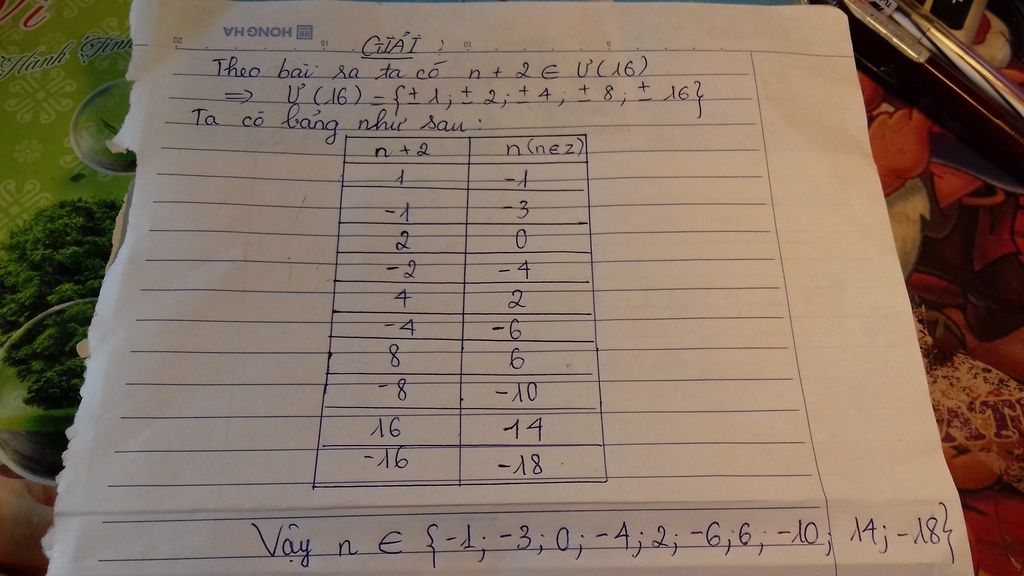 Vi
Hành Tinh
HONG HA
20 15 10 5
GIẢI:
Theo bài ra ta có n + 2 ∈ Ư(16)
=> Ư(16) = {± 1; ± 2; ± 4; ± 8; ± 16}
Ta có bảng như sau:
n + 2 n (n∈Z)
1 -1
-1 -3
2 0
-2 -4
4 2
-4 -6
8 6
-8 -10
16 14
-16 -18
Vậy n ∈ {-1; -3; 0; -4; 2; -6; 6; -10; 14; -18}